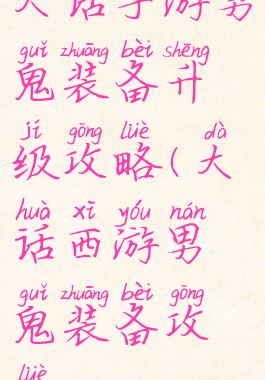 大话手游男
guǐ zhuāng bèi shēng
鬼装备升
jí gōng lüè dà
级攻略(大
huà xī yóu nán
话西游男
guǐ zhuāng bèi gōng
鬼装备攻
lüè